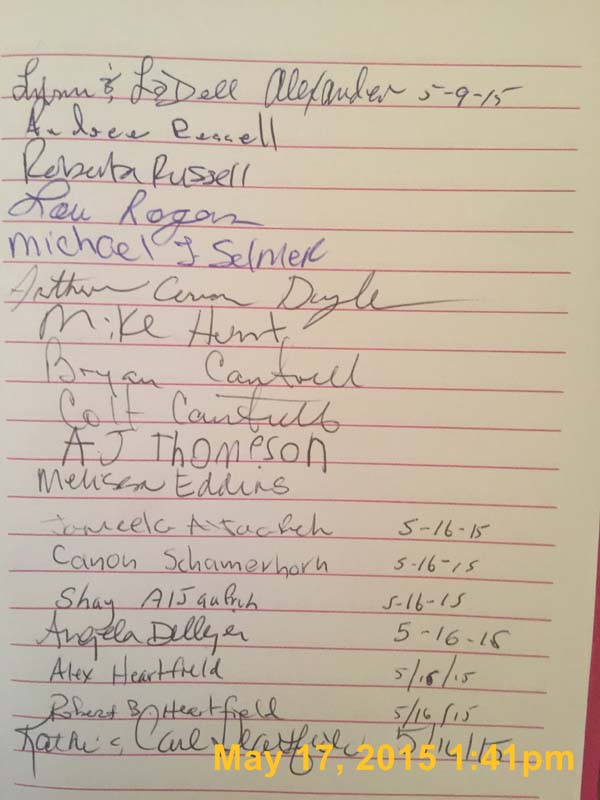 Lynn & LaDell Alexander 5-9-15
Andrew Russell
Roberta Russell
Lou Rogan
Michael J Selmer
Arthur Conan Doyle
Mike Hunt
Bryan Cantrell
Colt Cantrell
AJ Thompson
Melissa Eddins
Jameela 5-16-15
Canon Schamerhorn 5-16-15
Shay 5-16-15
Angela 5-16-15
Alex Heartfield 5/16/15
Robert B Heartfield 5/16/15
Kathi & Carl Heartfield 5/16/15
May 17, 2015 1:41pm